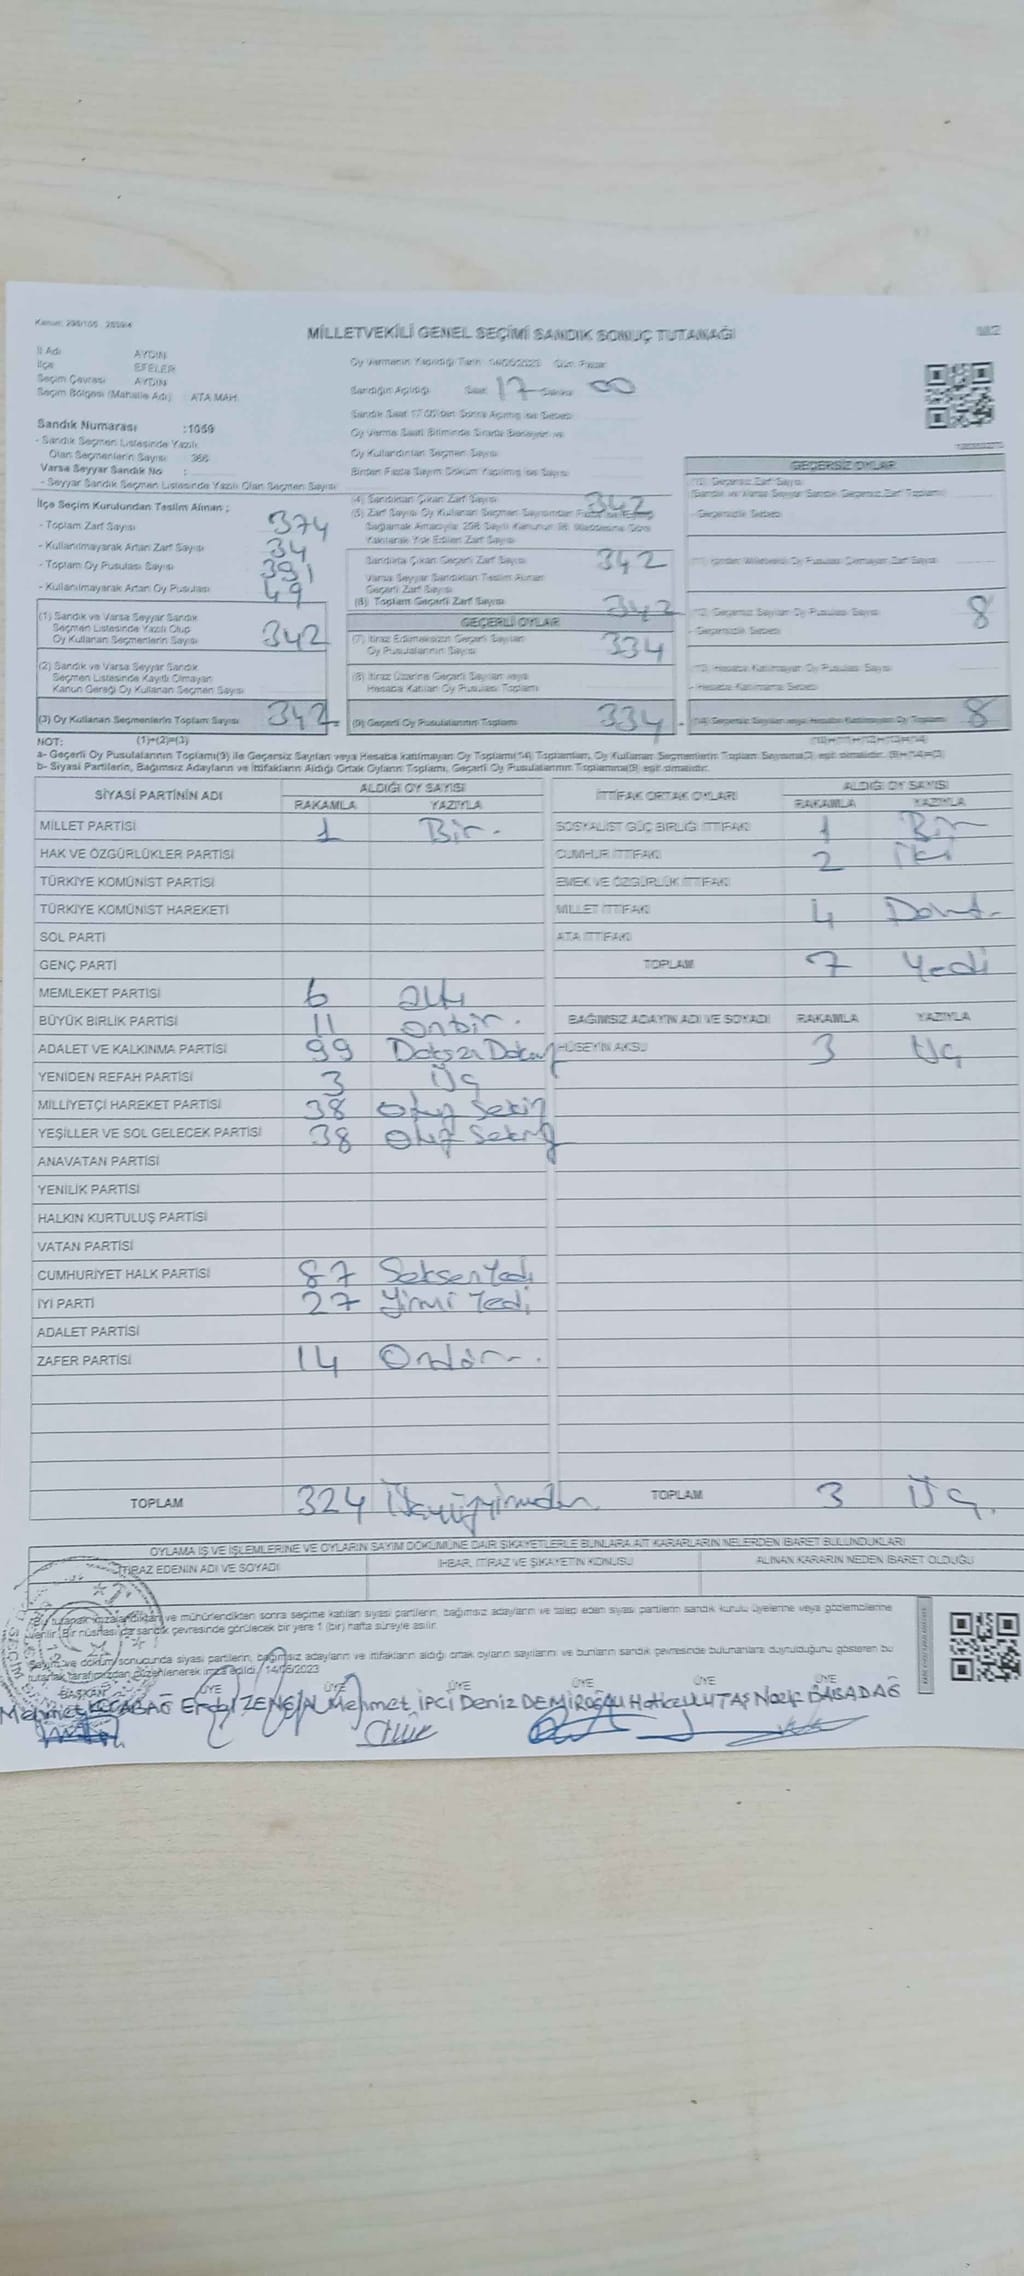 Kanun: 298/105 2839/4
MİLLETVEKİLİ GENEL SEÇİMİ SANDIK SONUÇ TUTANAĞI
İl Adı AYDIN
İlçe EFELER
Seçim Çevresi AYDIN
Seçim Bölgesi (Mahalle Adı) : ATA MAH.
Oy Vermenin Yapıldığı Tarih 14/05/2023 Gün Pazar
Sandığın Açıldığı Saat 17 00
Sandık Numarası :1059
- Sandık Seçmen Listesinde Yazılı
Olan Seçmenlerin Sayısı : 366
Varsa Seyyar Sandık No :
- Seyyar Sandık Seçmen Listesinde Yazılı Olan Seçmen Sayısı
Sandık Saat 17.00'den Sonra Açılmış ise Sebebi
Oy Verme Saati Bitiminde Sırada Bekleyen ve
Oy Kullandırılan Seçmen Sayısı
Birden Fazla Sayım Döküm Yapılmış ise Sayısı
İlçe Seçim Kurulundan Teslim Alınan ;
- Toplam Zarf Sayısı 374
- Kullanılmayarak Artan Zarf Sayısı 34
- Toplam Oy Pusulası Sayısı 391
- Kullanılmayarak Artan Oy Pusulası 49
(1) Sandık ve Varsa Seyyar Sandık
Seçmen Listesinde Yazılı Olup
Oy Kullanan Seçmenlerin Sayısı 342
(2) Sandık ve Varsa Seyyar Sandık
Seçmen Listesinde Kayıtlı Olmayan
Kanun Gereği Oy Kullanan Seçmen Sayısı
(3) Oy Kullanan Seçmenlerin Toplam Sayısı 342
(4) Sandıktan Çıkan Zarf Sayısı 342
(5) Zarf Sayısı Oy Kullanan Seçmen Sayısından Fazla ise Eşitliği
Sağlamak Amacıyla 298 Sayılı Kanunun 98. Maddesine Göre
Yakılarak Yok Edilen Zarf Sayısı
Sandıkta Çıkan Geçerli Zarf Sayısı 342
Varsa Seyyar Sandıktan Teslim Alınan
Geçerli Zarf Sayısı
(6) Toplam Geçerli Zarf Sayısı 342
GEÇERLİ OYLAR
(7) İtiraz Edilmeksizin Geçerli Sayılan
Oy Pusulalarının Sayısı 334
(8) İtiraz Üzerine Geçerli Sayılan veya
Hesaba Katılan Oy Pusulası Toplamı
(9) Geçerli Oy Pusulalarının Toplamı 334
GEÇERSİZ OYLAR
(10) Geçersiz Zarf Sayısı
(Sandık ve Varsa Seyyar Sandık Geçersiz Zarf Toplamı)
- Geçersizlik Sebebi
(12) Geçersiz Sayılan Oy Pusulası Sayısı 8
- Geçersizlik Sebebi
(13) Hesaba Katılmayan Oy Pusulası Sayısı
- Hesaba Katılmama Sebebi
(14) Geçersiz Sayılan veya Hesaba Katılmayan Oy Toplamı 8
NOT: (1)+(2)=(3)
a- Geçerli Oy Pusulalarının Toplamı(9) ile Geçersiz Sayılan veya Hesaba katılmayan Oy Toplamı(14) Toplamları, Oy Kullanan Seçmenlerin Toplam Sayısına(3) eşit olmalıdır. (9)+(14)=(3)
b- Siyasi Partilerin, Bağımsız Adayların ve İttifakların Aldığı Ortak Oyların Toplamı, Geçerli Oy Pusulalarının Toplamına(9) eşit olmalıdır.
SİYASİ PARTİNİN ADI ALDIĞI OY SAYISI
RAKAMLA YAZIYLA
MİLLET PARTİSİ 1 Bir.
HAK VE ÖZGÜRLÜKLER PARTİSİ
TÜRKİYE KOMÜNİST PARTİSİ
TÜRKİYE KOMÜNİST HAREKETİ
SOL PARTİ
GENÇ PARTİ
MEMLEKET PARTİSİ 6 altı
BÜYÜK BİRLİK PARTİSİ 11 onbir.
ADALET VE KALKINMA PARTİSİ 99 Doksan Dokuz
YENİDEN REFAH PARTİSİ 3 Üç
MİLLİYETÇİ HAREKET PARTİSİ 38 Otuz Sekiz
YEŞİLLER VE SOL GELECEK PARTİSİ 38 Otuz Sekiz
ANAVATAN PARTİSİ
YENİLİK PARTİSİ
HALKIN KURTULUŞ PARTİSİ
VATAN PARTİSİ
CUMHURİYET HALK PARTİSİ 87 Seksen Yedi
İYİ PARTİ 27 Yirmi Yedi
ADALET PARTİSİ
ZAFER PARTİSİ 14
TOPLAM 324
İTTİFAK ORTAK OYLARI ALDIĞI OY SAYISI
RAKAMLA YAZIYLA
SOSYALİST GÜÇ BİRLİĞİ İTTİFAKI 1 Bir
CUMHUR İTTİFAKI 2 İki
EMEK VE ÖZGÜRLÜK İTTİFAKI
MİLLET İTTİFAKI 4 Dört
ATA İTTİFAKI
TOPLAM 7 Yedi
BAĞIMSIZ ADAYIN ADI VE SOYADI RAKAMLA YAZIYLA
HÜSEYİN AKSU 3 Üç
TOPLAM 3 Üç.
OYLAMA İŞ VE İŞLEMLERİNE VE OYLARIN SAYIM DÖKÜMÜNE DAİR ŞİKAYETLERLE BUNLARA AİT KARARLARIN NELERDEN İBARET BULUNDUKLARI
İTİRAZ EDENİN ADI VE SOYADI İHBAR, İTİRAZ VE ŞİKAYETİN KONUSU ALINAN KARARIN NEDEN İBARET OLDUĞU
Bu tutanak imzalandıktan ve mühürlendikten sonra seçime katılan siyasi partilerin, bağımsız adayların ve talep eden siyasi partilerin sandık kurulu üyelerine veya gözlemcilerine
verilir. Bir nüshası da sandık çevresinde görülecek bir yere 1 (bir) hafta süreyle asılır.
Sayım ve döküm sonucunda siyasi partilerin, bağımsız adayların ve ittifakların aldığı ortak oyların sayılarını ve bunların sandık çevresinde bulunanlara duyurulduğunu gösteren bu
tutanak tarafımızdan düzenlenerek imza edildi. 14/05/2023
BAŞKAN ÜYE ÜYE ÜYE ÜYE ÜYE
Mehmet Erdal Mehmet İPCİ Deniz DEMİROĞLU Hatice ULUTAŞ BABADAĞ